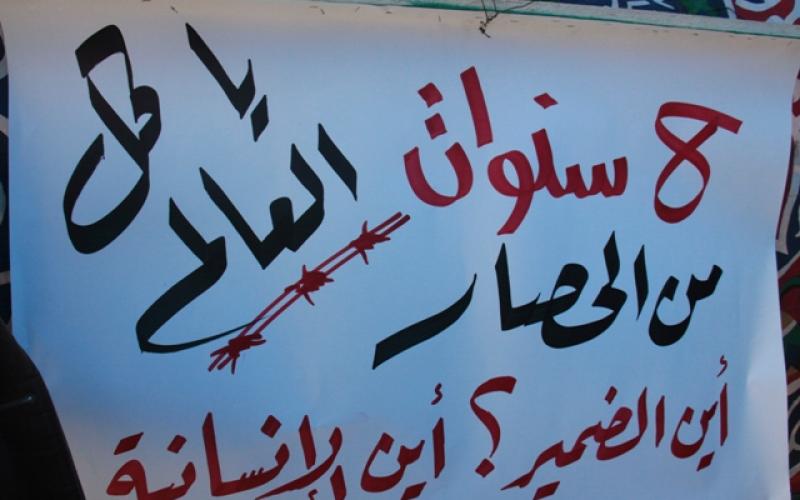 8 سنوات
من الحصار
يا كل
العالم
أين الضمير؟ أين الإنسانية